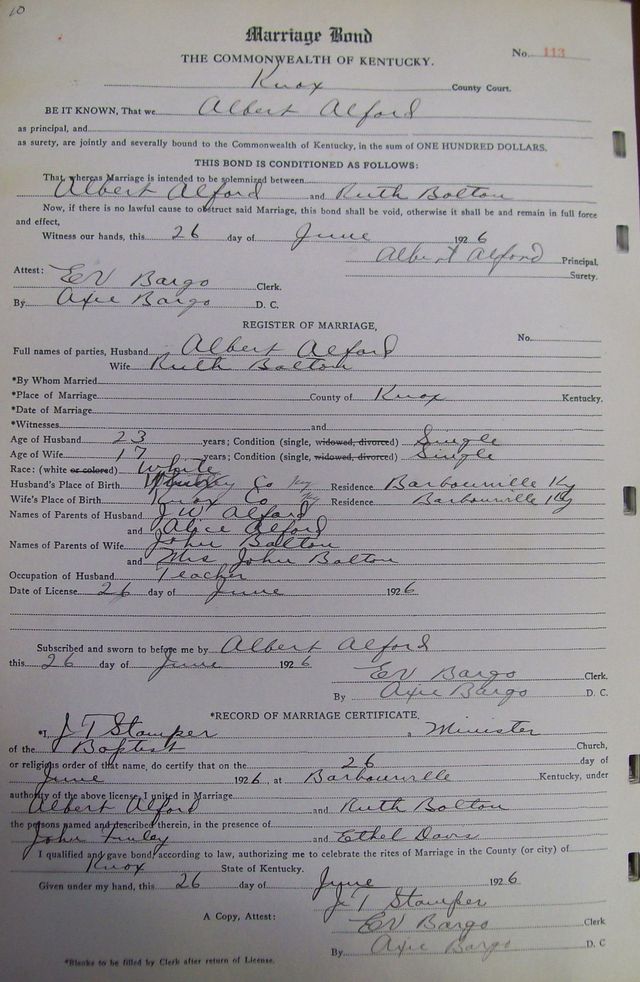 10
Marriage Bond
No. 113
THE COMMONWEALTH OF KENTUCKY.
Knox County Court.
BE IT KNOWN, That we Albert Alford
as principal, and
as surety, are jointly and severally bound to the Commonwealth of Kentucky, in the sum of ONE HUNDRED DOLLARS.
THIS BOND IS CONDITIONED AS FOLLOWS:
That, whereas Marriage is intended to be solemnized between
Albert Alford and Ruth Bolton
Now, if there is no lawful cause to obstruct said Marriage, this bond shall be void, otherwise it shall be and remain in full force
and effect,
Witness our hands, this 26 day of June 1926
Albert Alford Principal.
Surety.
Attest: EV Bargo Clerk.
By Axie Bargo D. C.
REGISTER OF MARRIAGE,
No.
Full names of parties, Husband Albert Alford
Wife Ruth Bolton
*By Whom Married
*Place of Marriage County of Knox Kentucky.
*Date of Marriage
*Witnesses and
Age of Husband 23 years; Condition (single, widowed, divorced) Single
Age of Wife 17 years; Condition (single, widowed, divorced) Single
Race: (white or colored) White
Husband's Place of Birth Whitley Co Ky Residence Barbourville Ky
Wife's Place of Birth Knox Co Ky Residence Barbourville Ky
Names of Parents of Husband J W Alford
and Alice Alford
Names of Parents of Wife John Bolton
and Mrs John Bolton
Occupation of Husband Teacher
Date of License 26 day of June 1926
Subscribed and sworn to before me by Albert Alford
this 26 day of June 1926
EV Bargo Clerk.
By Axie Bargo D. C.
*RECORD OF MARRIAGE CERTIFICATE,
*I, J T Stamper a Minister
of the Baptist Church,
or religious order of that name, do certify that on the 26 day of
June 1926, at Barbourville Kentucky, under
authority of the above license, I united in Marriage
Albert Alford and Ruth Bolton
the persons named and described therein, in the presence of
John Finley and Ethel Davis
I qualified and gave bond, according to law, authorizing me to celebrate the rites of Marriage in the County (or city) of
Knox State of Kentucky.
Given under my hand, this 26 day of June 1926
J T Stamper
A Copy, Attest: EV Bargo Clerk
By Axie Bargo D. C
*Blanks to be filled by Clerk after return of License.